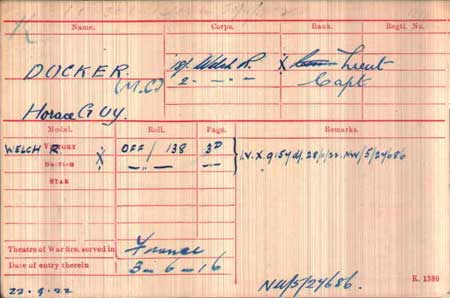 Name. Corps. Rank. Regtl. No.
DOCKER. Welch R. X Lieut
(M.C) 2 - " - Capt
Horace GUY.
Medal. Roll. Page. Remarks.
VICTORY WELCH R. X OFF/138 3D
BRITISH - " - - " -
STAR
I.V.X. 9154 NW/5/27686
Theatre of War first served in France
Date of entry therein 3-6-16
NW/5/27686. K. 1380
22.9.22